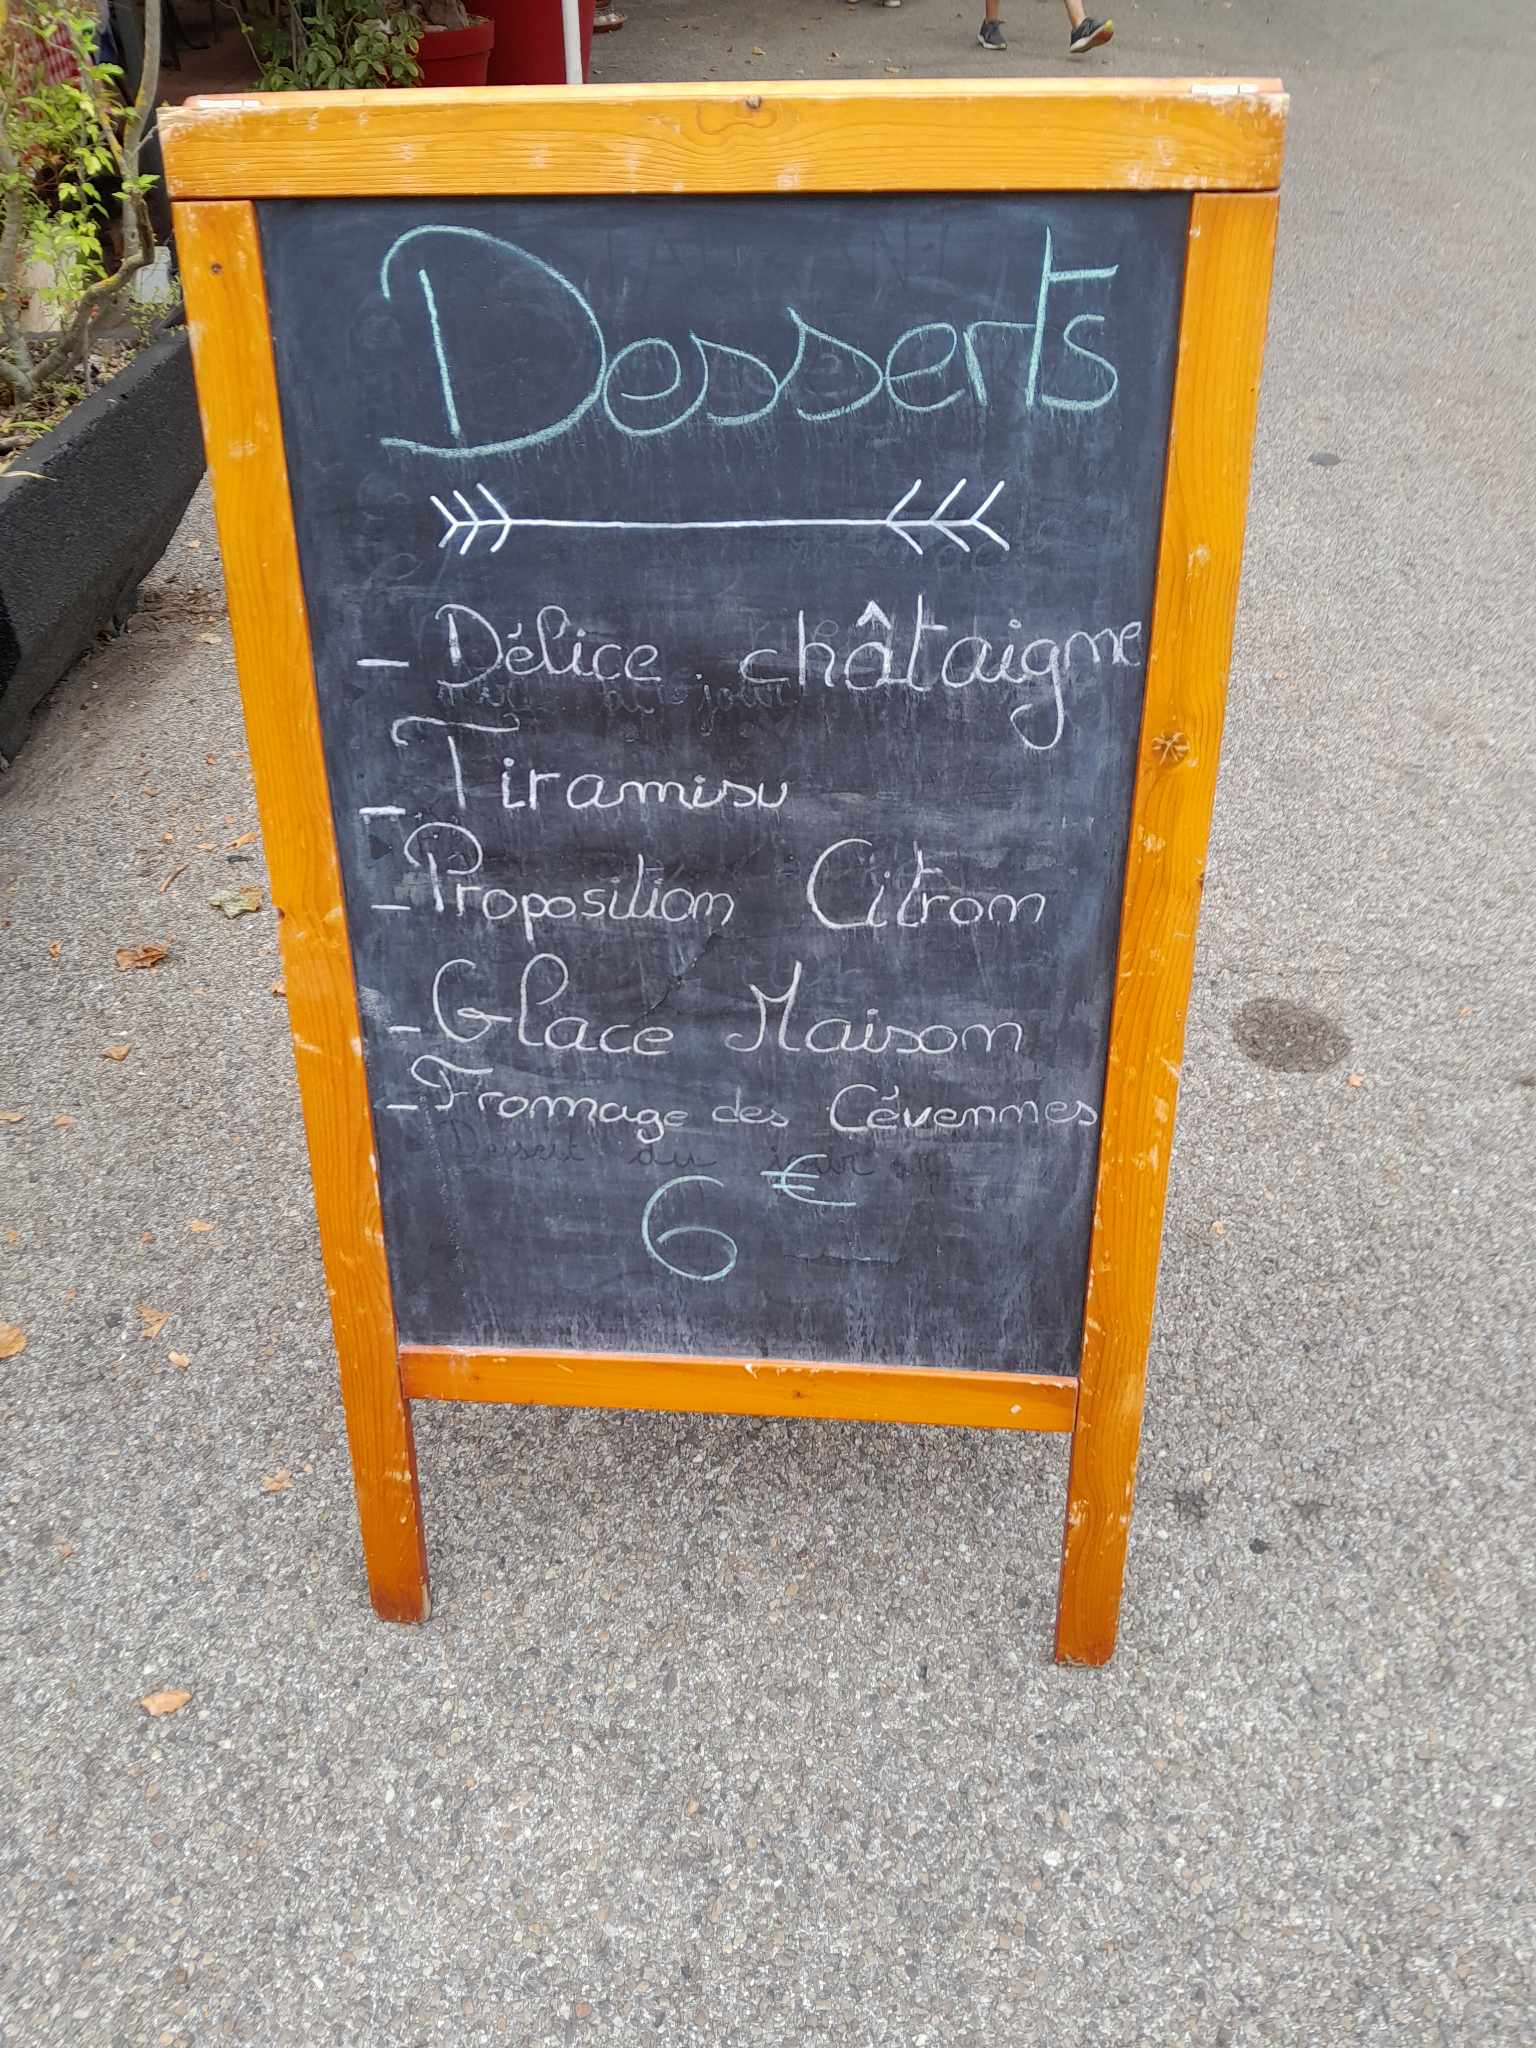 Desserts
- Délice châtaigne
- Tiramisu
- Proposition Citron
- Glace Maison
- Fromage des Cévennes
6 €